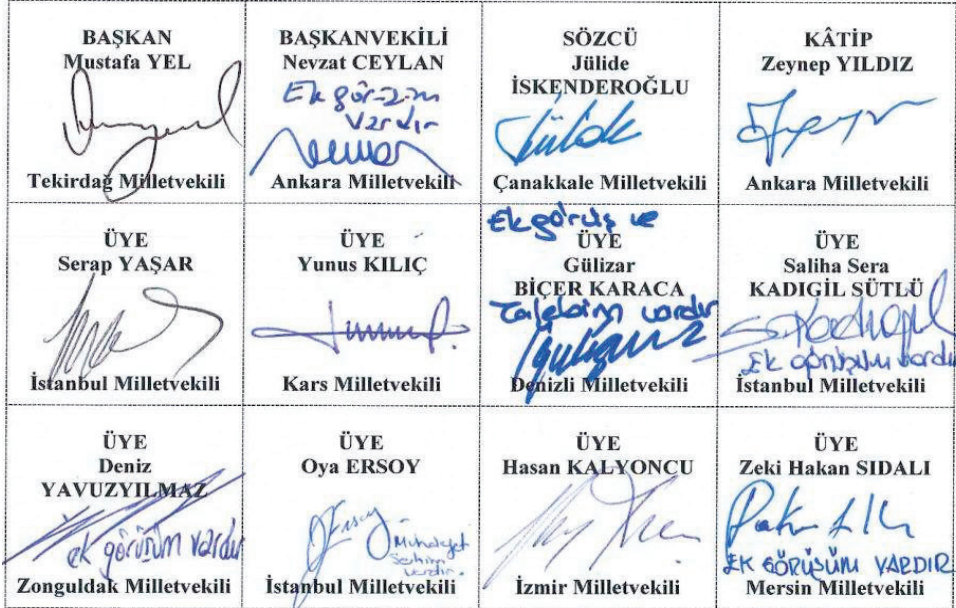 BAŞKAN
Mustafa YEL
Tekirdağ Milletvekili
BAŞKANVEKİLİ
Nevzat CEYLAN
Ek
vardır
Ankara Milletvekili
SÖZCÜ
Jülide
İSKENDEROĞLU
Jülide
Çanakkale Milletvekili
KÂTİP
Zeynep YILDIZ
Ankara Milletvekili
ÜYE
Serap YAŞAR
İstanbul Milletvekili
ÜYE
Yunus KILIÇ
Kars Milletvekili
Ek görüş ve
ÜYE
Gülizar
BİÇER KARACA
Talebim vardır
Denizli Milletvekili
ÜYE
Saliha Sera
KADIGİL SÜTLÜ
Ek görüşüm vardır
İstanbul Milletvekili
ÜYE
Deniz
YAVUZYILMAZ
ek görüşüm vardır
Zonguldak Milletvekili
ÜYE
Oya ERSOY
vardır.
İstanbul Milletvekili
ÜYE
Hasan KALYONCU
İzmir Milletvekili
ÜYE
Zeki Hakan SIDALI
EK GÖRÜŞÜM VARDIR
Mersin Milletvekili